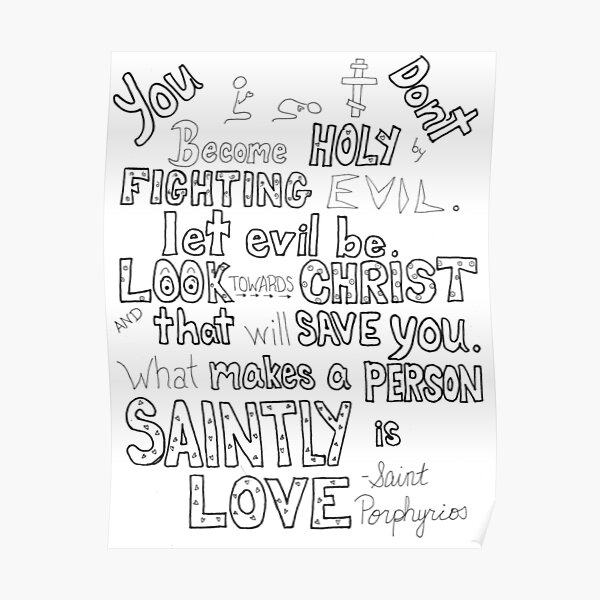 You Dont
Become HOLY by
FIGHTING EVIL.
let evil be.
LOOK TOWARDS CHRIST
AND that will SAVE you.
What makes a PERSON
SAINTLY is
LOVE -Saint
Porphyrios